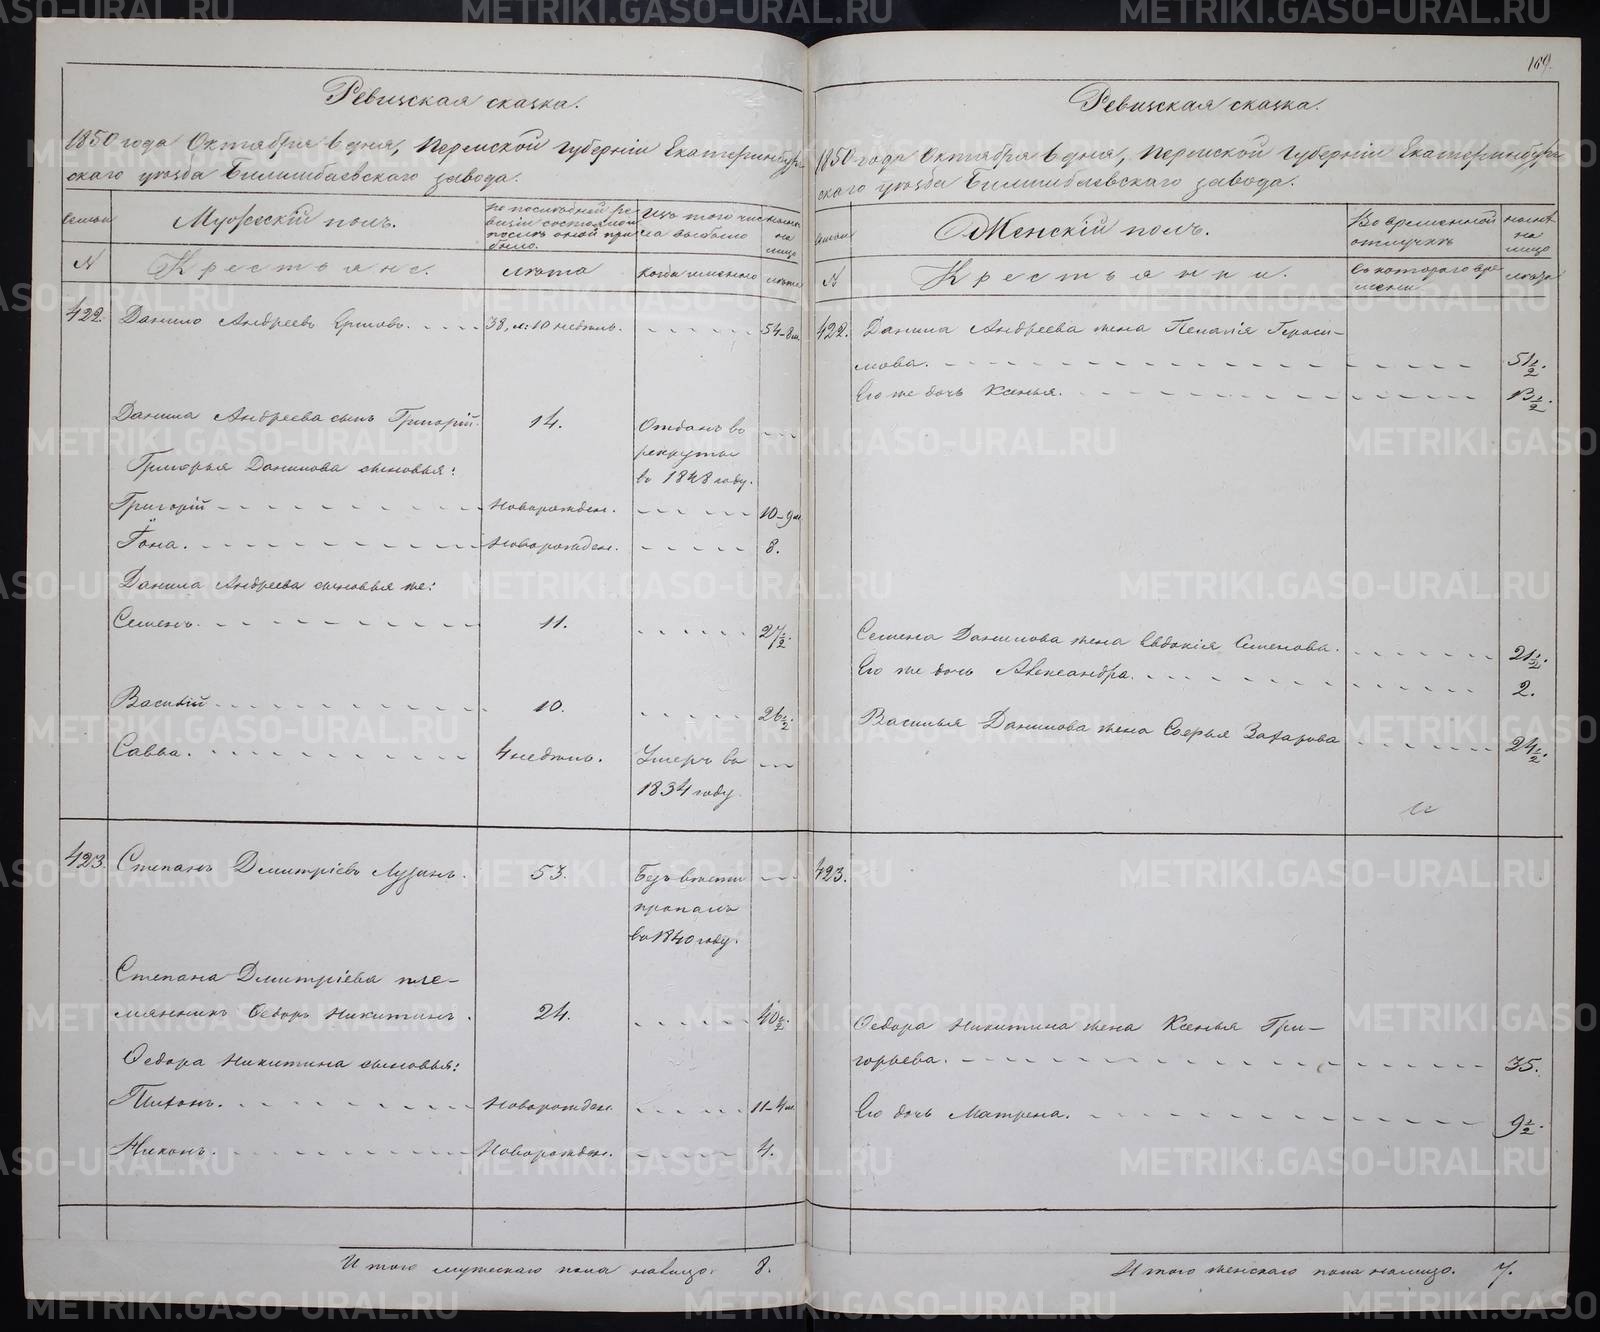 169.
Ревизская сказка.
1850 года Октября 6 дня, Пермской губерніи Екатеринбург-
скаго уѣзда Билимбаевскаго завода.
Семьи
Мужескій полъ.
по послѣдней ре-
визіи состояло и
послѣ оной при-
было.
Изъ того числа
выбыло
налицо
№
Крестьяне.
лѣта
когда именно
лѣта
422. Данило Андреевъ Ершовъ. 38, л: 10 недѣль. 54-8 м.
Данила Андреева сынъ Григорій. 14. Отданъ въ
рекруты
въ 1848 году.
Григорья Данилова сыновья:
Григорій Новорожден. 10-9 м
Іона. Новорожден. 8.
Данила Андреева сыновья же:
Семенъ. 11. 27½.
Василій 10. 26½.
Савва. 4 недѣль. Умеръ въ
1834 году.
423. Степанъ Дмитріевъ Лузинъ. 53. Безъ вѣсти
пропалъ
въ 1840 году.
Степана Дмитріева пле-
мянникъ Ѳедоръ Никитинъ. 24. 40½.
Ѳедора Никитина сыновья:
Тихонъ. Новорожден. 11-4 м.
Никонъ. Новорожден. 4.
Итого мужескаго пола налицо. 8.
Ревизская сказка.
1850 года Октября 6 дня, Пермской Губерніи Екатеринбург-
скаго уѣзда Билимбаевскаго завода.
Семьи
Женскій полъ.
Во временной
отлучкѣ
налицо
№
Крестьянки.
съ котораго вре-
мени
лѣта
422. Данила Андреева жена Пелагія Гераси-
мова. 51½.
Его же дочь Ксенья. 13½.
Семена Данилова жена Евдокія Семенова. 21½.
Его же дочь Александра. 2.
Василья Данилова жена Софья Захарова 24½.
423.
Ѳедора Никитина жена Ксенья Гри-
горьева. 35.
Его дочь Матрена. 9½.
Итого женскаго пола налицо. 7.
METRIKI.GASO-URAL.RU